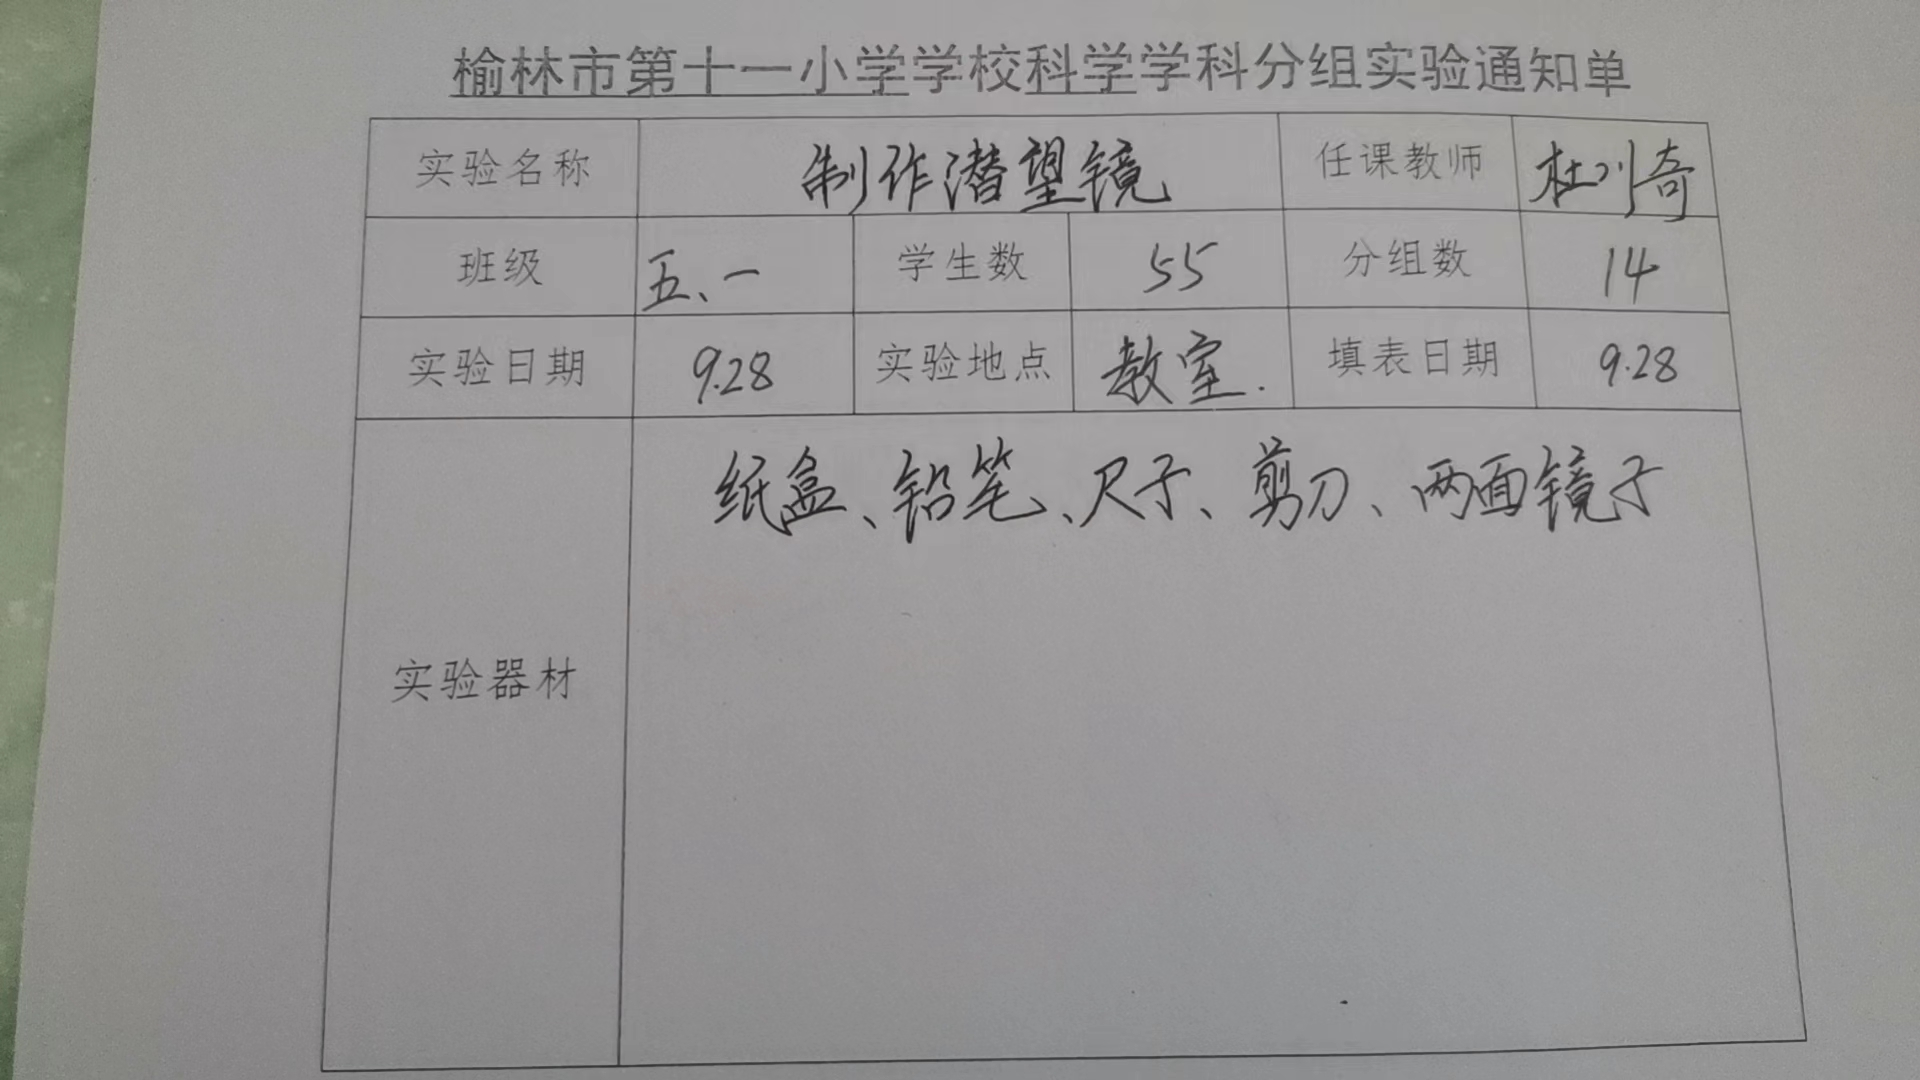 榆林市第十一小学学校科学学科分组实验通知单
实验名称 制作潜望镜 任课教师 杜小奇
班级 五、一 学生数 55 分组数 14
实验日期 9.28 实验地点 教室. 填表日期 9.28
纸盒、铅笔、尺子、剪刀、两面镜子
实验器材